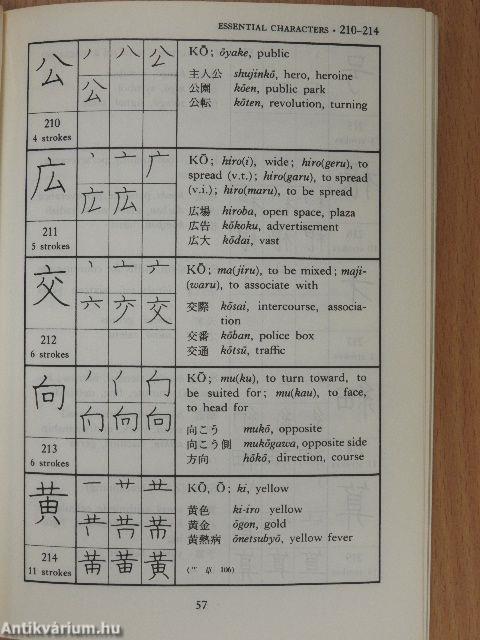 ESSENTIAL CHARACTERS · 210–214
公
210
4 strokes
KŌ; ōyake, public
主人公 shujinkō, hero, heroine
公園 kōen, public park
公転 kōten, revolution, turning
広
211
5 strokes
KŌ; hiro(i), wide; hiro(geru), to
spread (v.t.); hiro(garu), to spread
(v.i.); hiro(maru), to be spread
広場 hiroba, open space, plaza
広告 kōkoku, advertisement
広大 kōdai, vast
交
212
6 strokes
KŌ; ma(jiru), to be mixed; maji-
(waru), to associate with
交際 kōsai, intercourse, associa-
tion
交番 kōban, police box
交通 kōtsū, traffic
向
213
6 strokes
KŌ; mu(ku), to turn toward, to
be suited for; mu(kau), to face,
to head for
向こう mukō, opposite
向こう側 mukōgawa, opposite side
方向 hōkō, direction, course
黄
214
11 strokes
KŌ, Ō; ki, yellow
黄色 ki-iro yellow
黄金 ōgon, gold
黄熱病 ōnetsubyō, yellow fever
106)
57
Antikvárium.hu